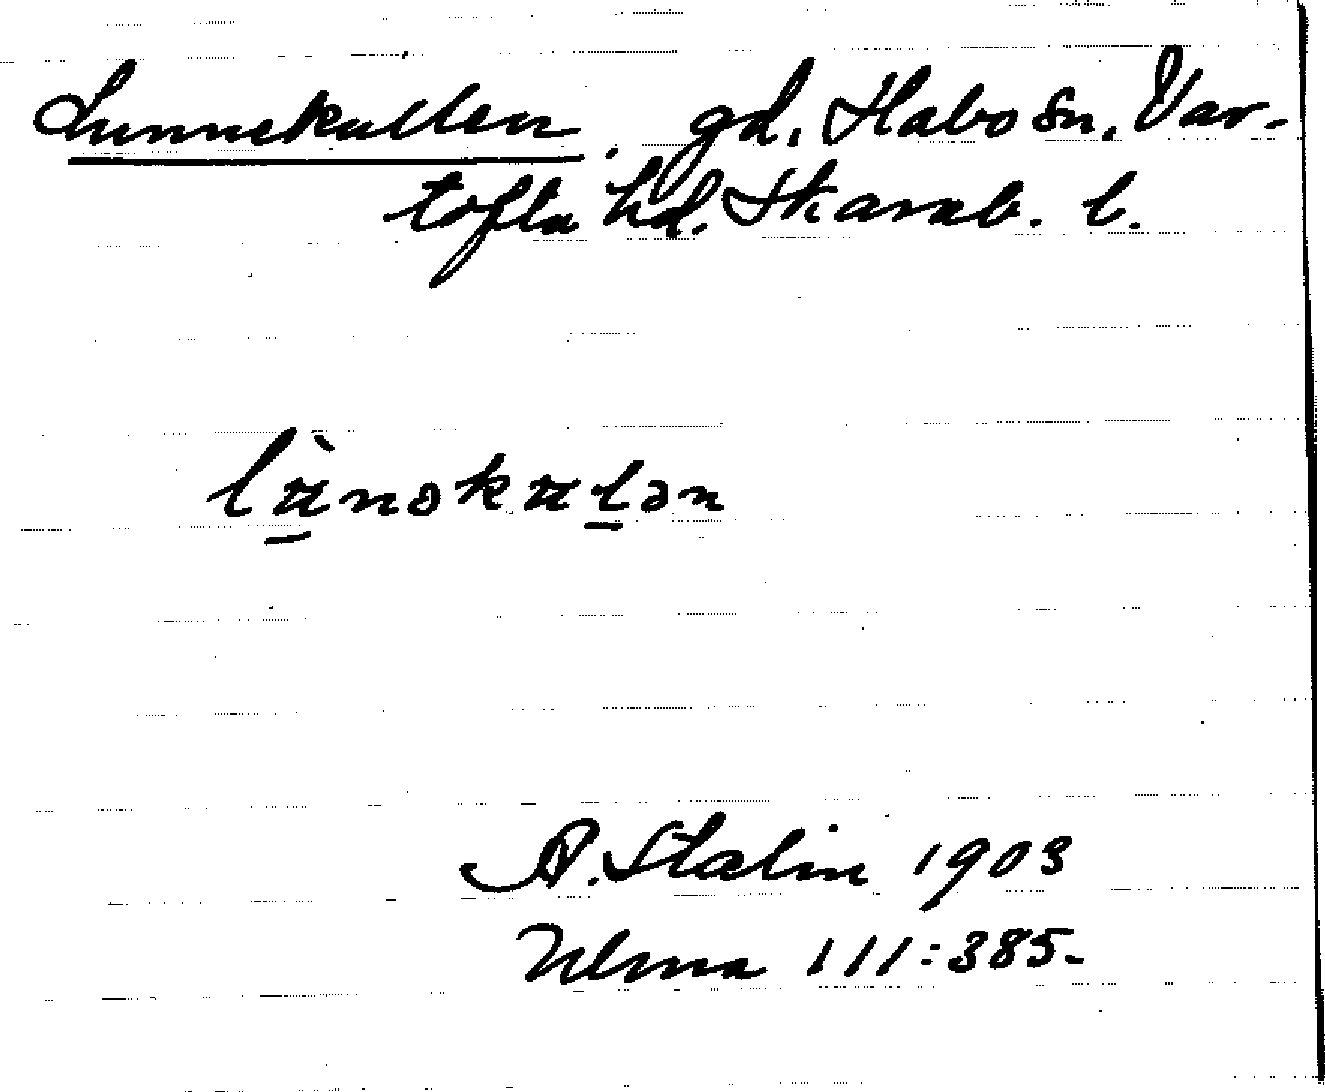 Lunnekullen. gd. Habo sn. Var-
tofta hd. Skarab. l.
lù̱nəkul̲ən
A. Stalin 1903
Ulma 111:385.